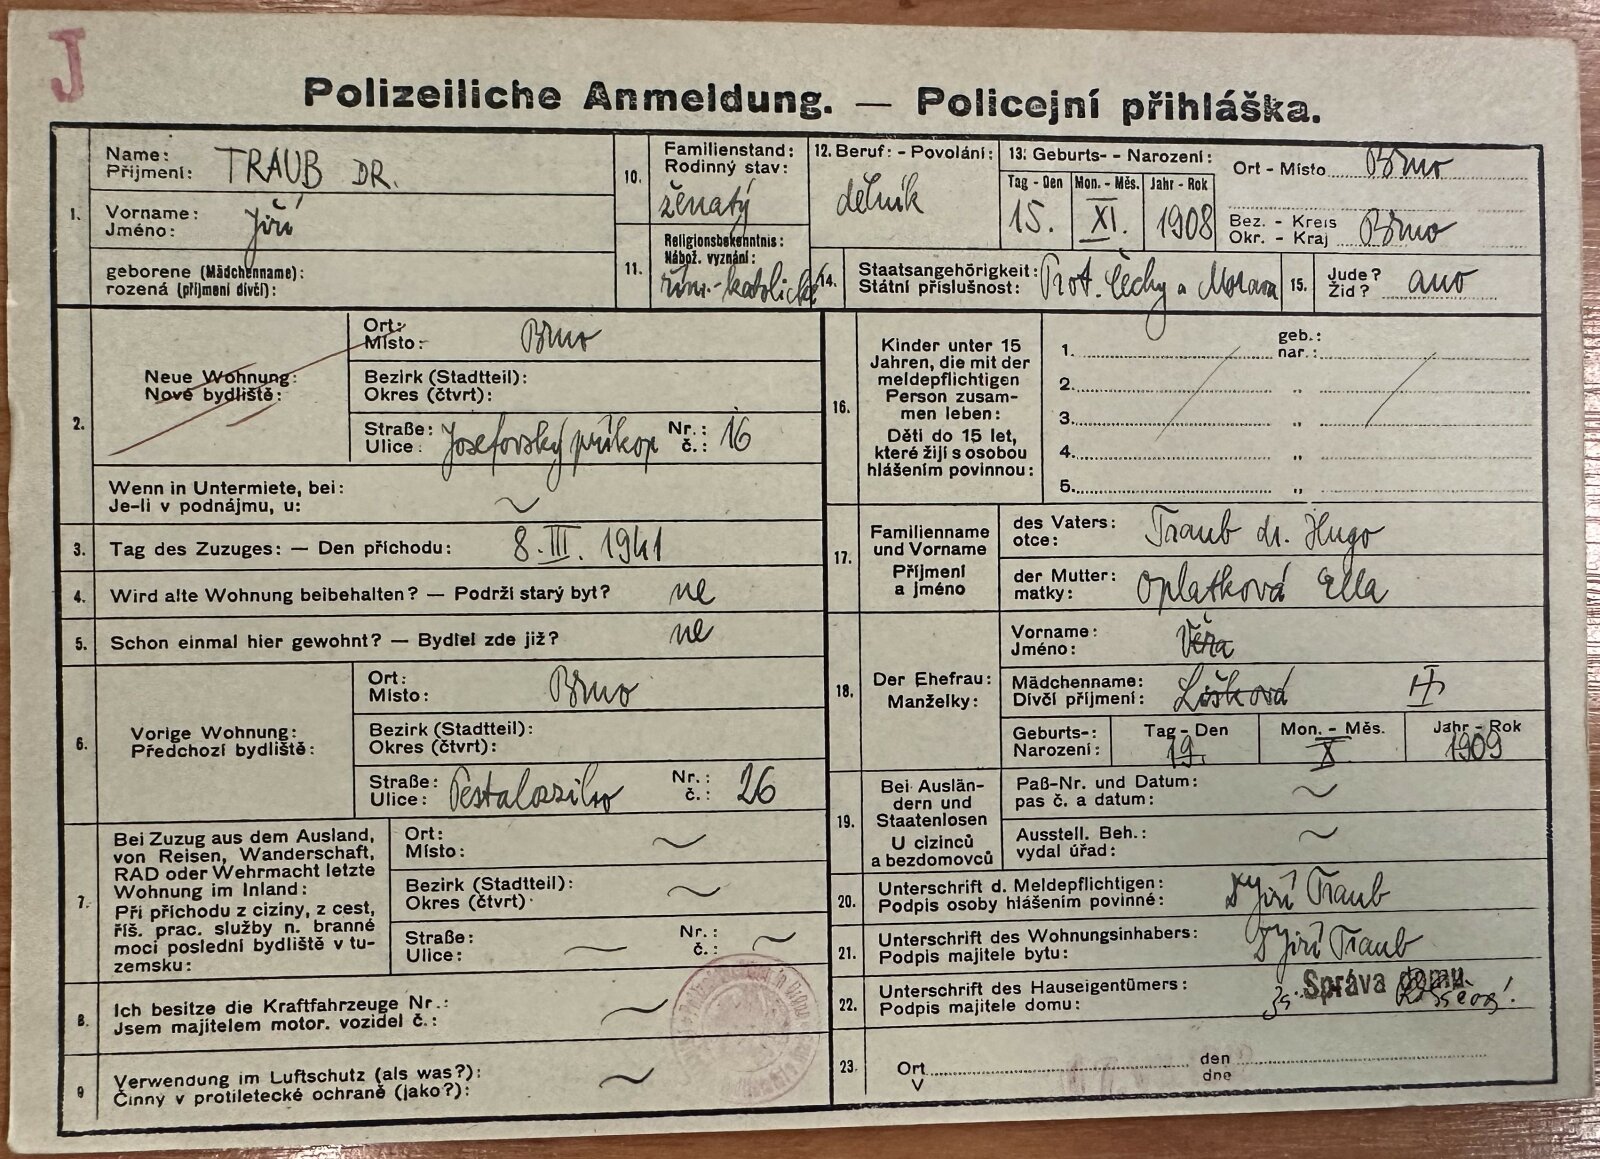 J
Polizeiliche Anmeldung. — Policejní přihláška.
1.
Name: TRAUB DR.
Příjmení:
Vorname: Jiří
Jméno:
geborene (Mädchenname):
rozená (příjmení dívčí):
10.
Familienstand:
Rodinný stav:
ženatý
11.
Religionsbekenntnis:
Nábož. vyznání:
řím.-katolické
12. Beruf: - Povolání:
dělník
13. Geburts- - Narození:
Tag - Den Mon. - Měs. Jahr - Rok
15. XI. 1908
Ort - Místo Brno
Bez. - Kreis
Okr. - Kraj Brno
14.
Staatsangehörigkeit:
Státní příslušnost: Prot. Čechy a Morava
15.
Jude?
Žid? ano
2.
Neue Wohnung:
Nové bydliště:
Ort:
Místo: Brno
Bezirk (Stadtteil):
Okres (čtvrt):
Straße: Nr.:
Ulice: Josefovský příkop č.: 16
Wenn in Untermiete, bei:
Je-li v podnájmu, u: ~
3. Tag des Zuzuges: — Den příchodu: 8. III. 1941
4. Wird alte Wohnung beibehalten? — Podrží starý byt? ne
5. Schon einmal hier gewohnt? — Bydlel zde již? ne
6.
Vorige Wohnung:
Předchozí bydliště:
Ort:
Místo: Brno
Bezirk (Stadtteil):
Okres (čtvrt):
Straße: Nr.:
Ulice: Pestalozziho č.: 26
7.
Bei Zuzug aus dem Ausland,
von Reisen, Wanderschaft,
RAD oder Wehrmacht letzte
Wohnung im Inland:
Při příchodu z ciziny, z cest,
říš. prac. služby n. branné
moci poslední bydliště v tu-
zemsku:
Ort:
Místo: ~
Bezirk (Stadtteil):
Okres (čtvrt): ~
Straße: Nr.:
Ulice: ~ č.: ~
8.
Ich besitze die Kraftfahrzeuge Nr.:
Jsem majitelem motor. vozidel č.: ~
9
Verwendung im Luftschutz (als was?):
Činný v protiletecké ochraně (jako?): ~
16.
Kinder unter 15
Jahren, die mit der
meldepflichtigen
Person zusam-
men leben:
Děti do 15 let,
které žijí s osobou
hlášením povinnou:
geb.:
1. nar.:
2. „
3. „
4. „
5. „
17.
Familienname
und Vorname
Příjmení
a jméno
des Vaters:
otce: Traub dr. Hugo
der Mutter:
matky: Oplatková Ella
18.
Der Ehefrau:
Manželky:
Vorname:
Jméno: Věra
Mädchenname:
Dívčí příjmení: Lišková
Geburts-:
Narození:
Tag - Den Mon. - Měs. Jahr - Rok
19. X. 1909
19.
Bei Auslän-
dern und
Staatenlosen
U cizinců
a bezdomovců
Paß-Nr. und Datum:
pas č. a datum: ~
Ausstell. Beh.:
vydal úřad: ~
20.
Unterschrift d. Meldepflichtigen:
Podpis osoby hlášením povinné: Dr Jiří Traub
21.
Unterschrift des Wohnungsinhabers:
Podpis majitele bytu: Dr Jiří Traub
22.
Unterschrift des Hauseigentümers:
Podpis majitele domu:
Správa domu
23.
Ort den
V dne